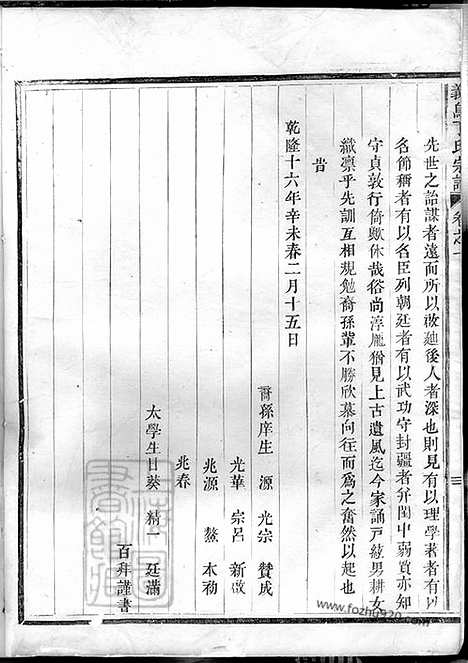 義烏丁氏宗譜 卷之一
先世之詒謀者遠而所以啟廸後人者深也則見有以理學著者有以
名節稱者有以名臣列朝廷者有以武功守封疆者弁閨中弱質亦知
守貞敦行猗歟休哉俗尚淳龐猶見上古遺風迄今家誦戸絃男耕女
織凛乎先訓互相規勉裔孫輩不勝欣慕向往而為之奮然以起也
旹
乾隆十六年辛未春二月十五日
裔孫庠生 源 光宗 贊成
光華 宗呂 新
兆源 鰲 本初
兆春
太學生日葵 精一 廷滿
百拜謹書
www.fozhu920.com